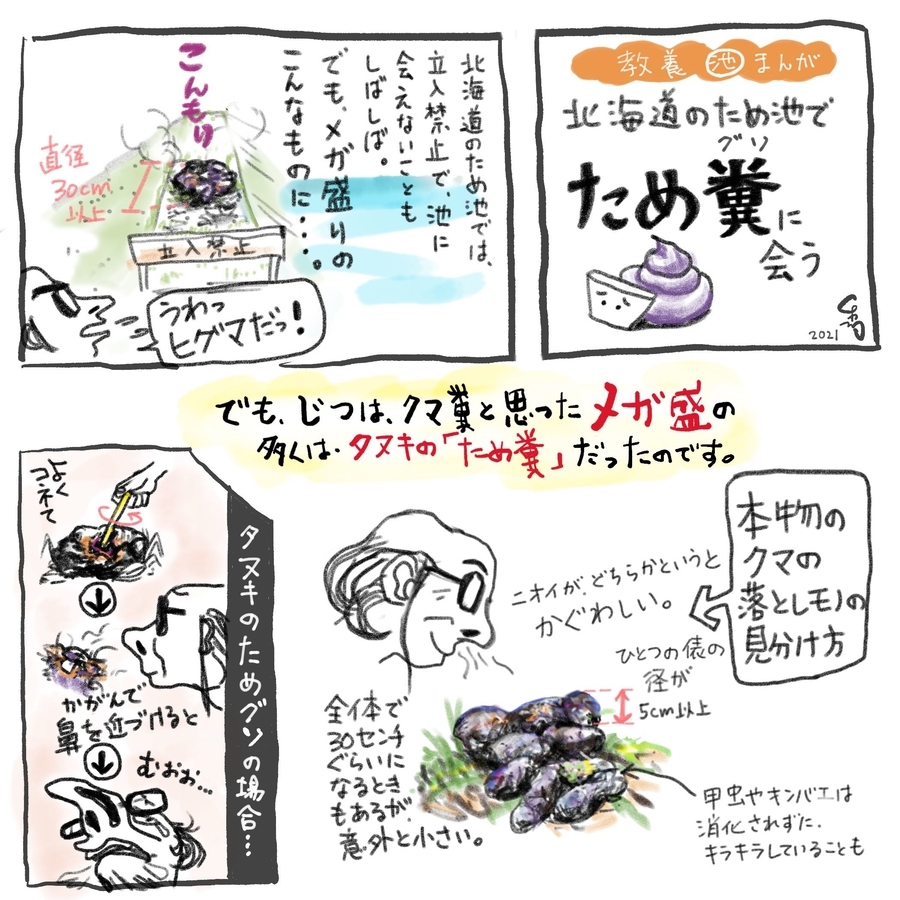 教養池まんが
北海道のため池で
グソ
ため糞に
会う
2021
北海道のため池では、
立入禁止で、池に
会えないことも
しばしば。
でも、メガ盛りの
こんなものに・・・。
こんもり
直径
30cm
以上
立入禁止
うわっ
ヒグマだっ!
でも、じつは、クマ糞と思ったメガ盛の
多くは、タヌキの「ため糞」だったのです。
本物の
クマの
落としモノの
見分け方
ニオイが、どちらかというと
かぐわしい。
ひとつの俵の
径が
5cm以上
全体で
30センチ
ぐらいに
なるとき
もあるが、
意外と小さい。
甲虫やキンバエは
消化されずに、
キラキラしていることも
タヌキのためグソの場合…
よく
コネて
かがんで
鼻を近づけると
むおお…